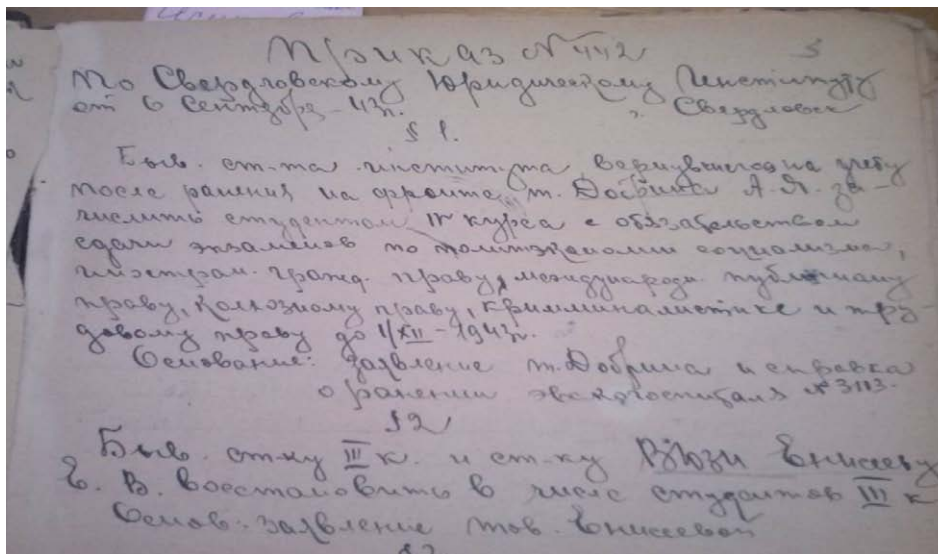 Приказ № 442
По Свердловскому Юридическому Институту
от 6 Сентября - 43 г. г. Свердловск
§ 1.
Быв. ст-та института вернувшегося на учебу
после ранения на фронте т. Добрина А. Я. за-
числить студентом IV курса с обязательством
сдачи экзаменов по политэкономии социализма,
иностран. гражд. праву, международн. публичному
праву, колхозному праву, криминалистике и тру-
довому праву до 1/XII - 1943 г.
Основание: заявление т. Добрина и справка
о ранении эвакогоспиталя № 3113.
§ 2
Быв. ст-ку III к. и ст-ку ВЮЗИ Енисеву
Е. В. восстановить в числе студентов III к
Основ: заявление тов. Енисевой